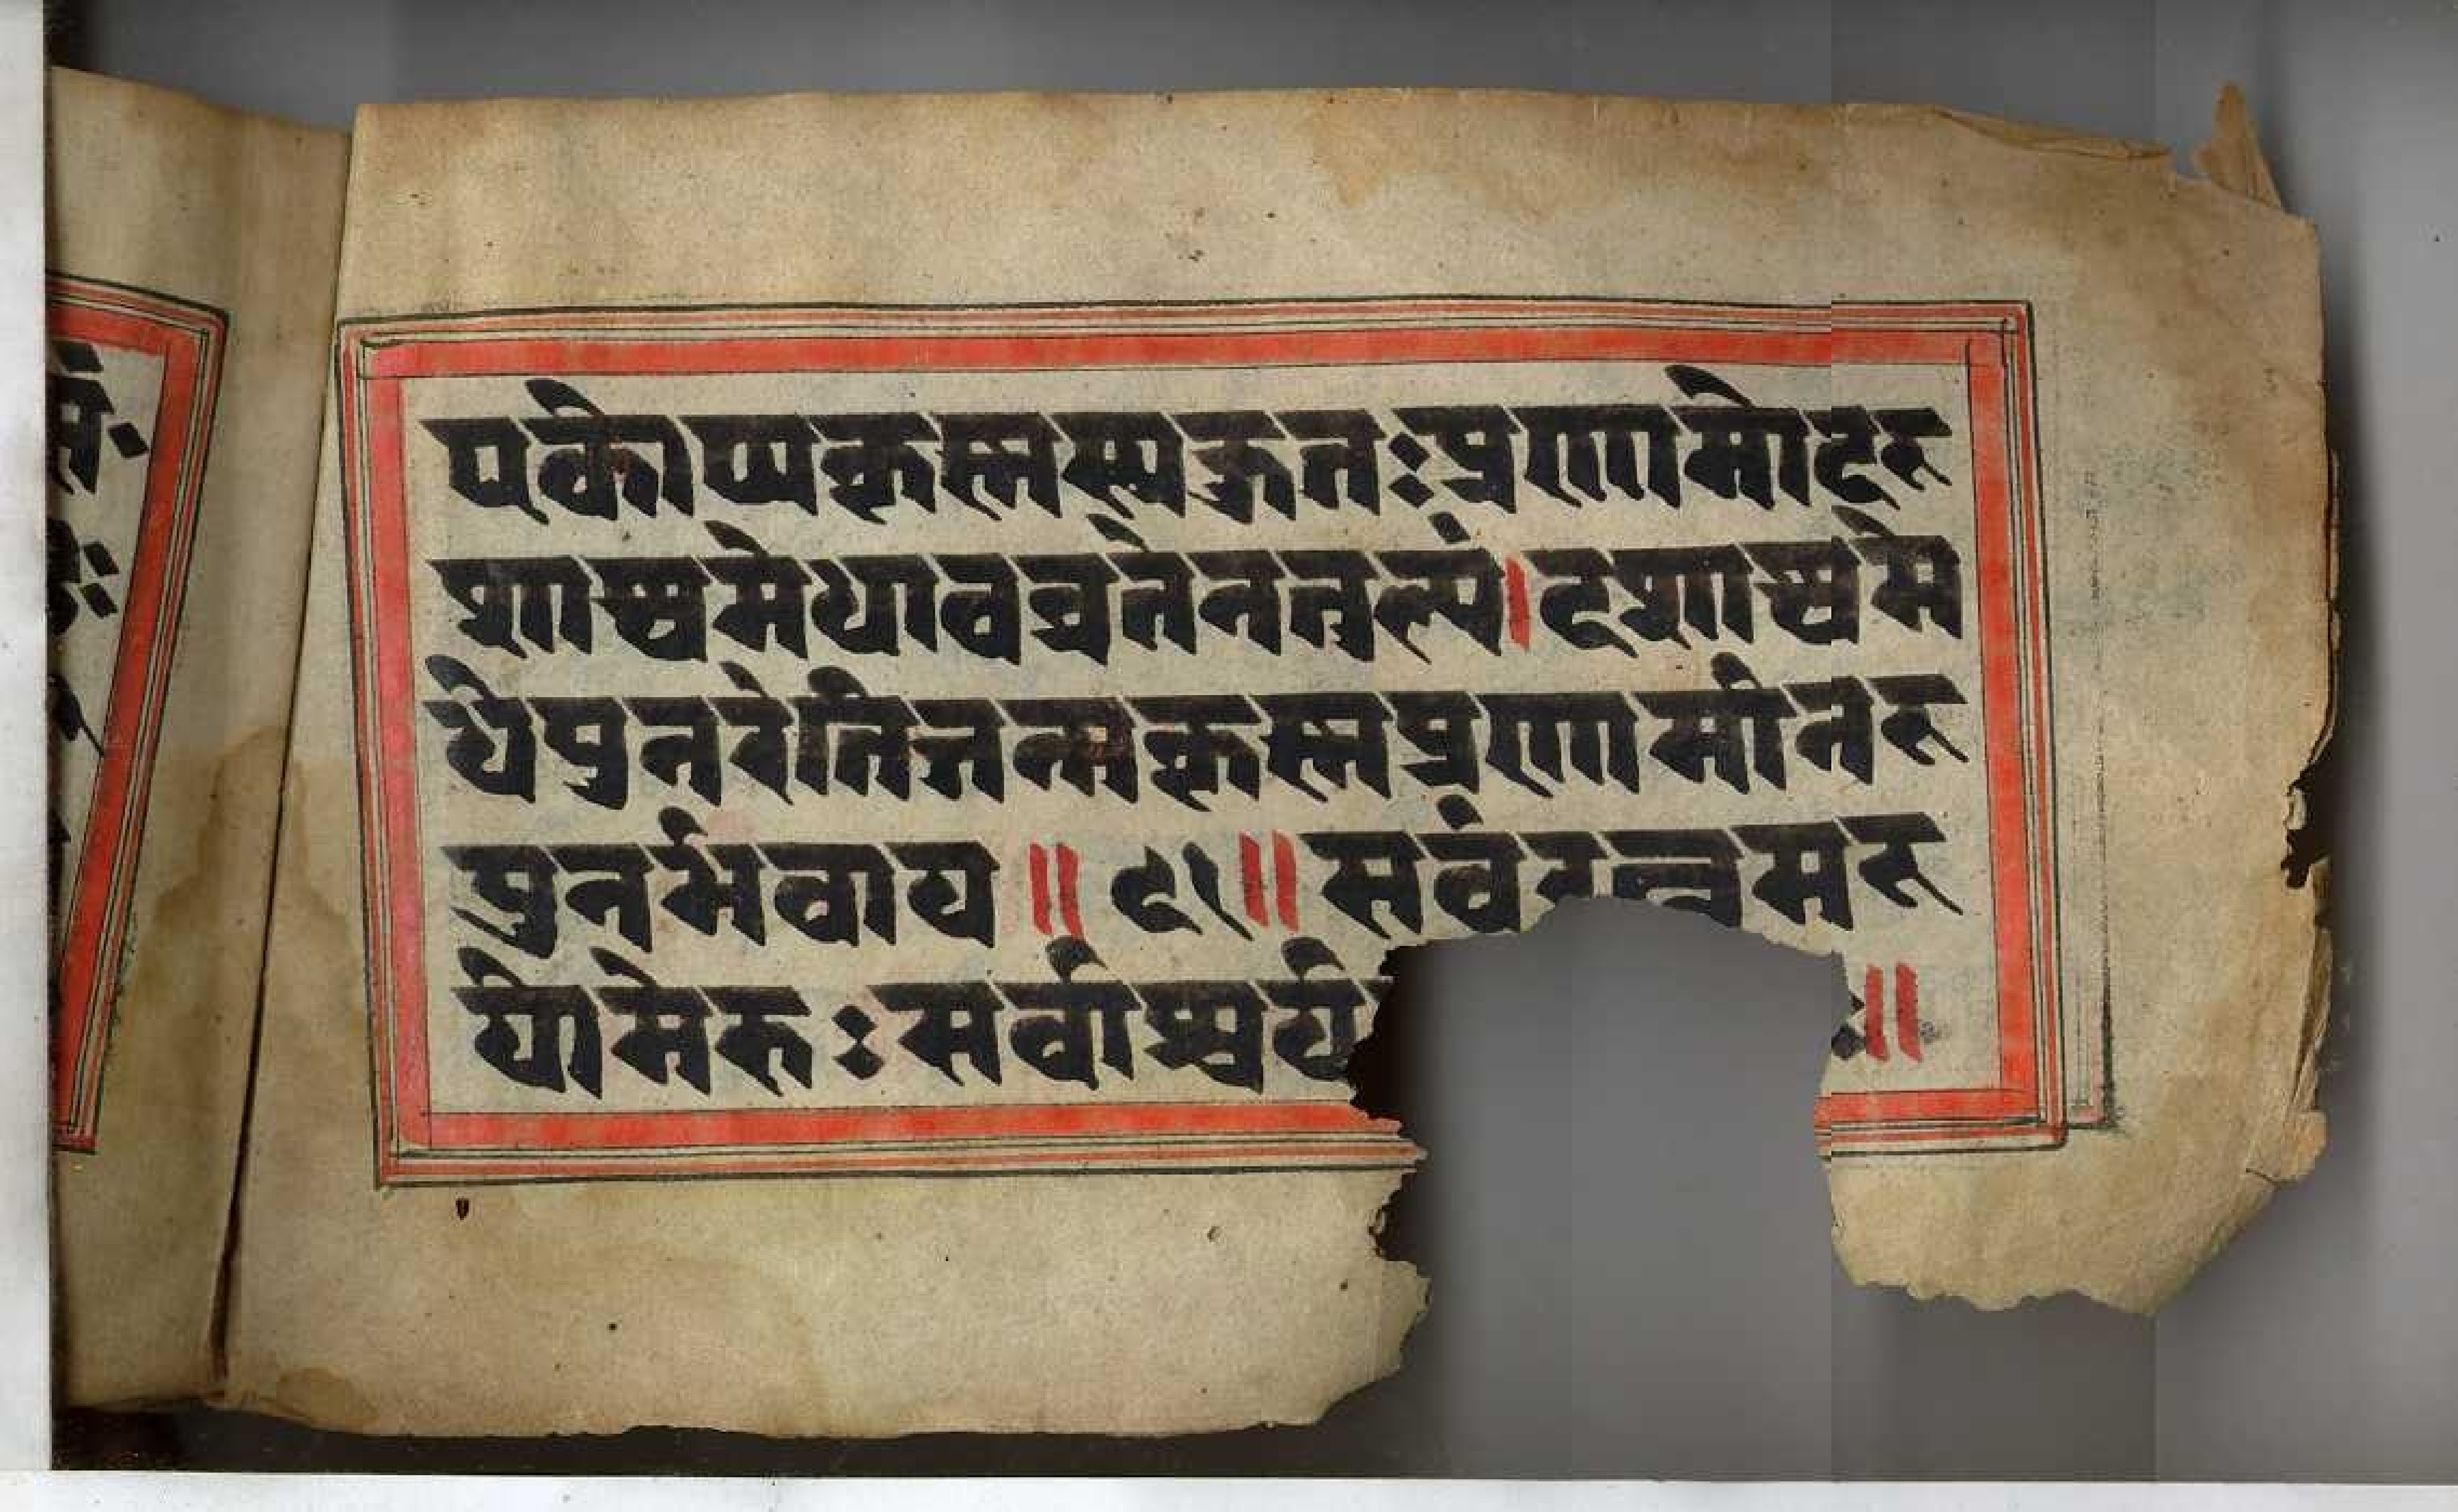 एकोप्यकृस्नस्यकृतःप्रणामोदरु
शाश्वमेधावब्रतेनतुल्यं।दशाश्वमे
धेपुनरेतिजन्मकृस्नप्रणामीनरु
पुनर्भवाय ॥ ९१ ॥ सर्वरत्नमरु
योमेरुः सर्वाश्चर्य ॥